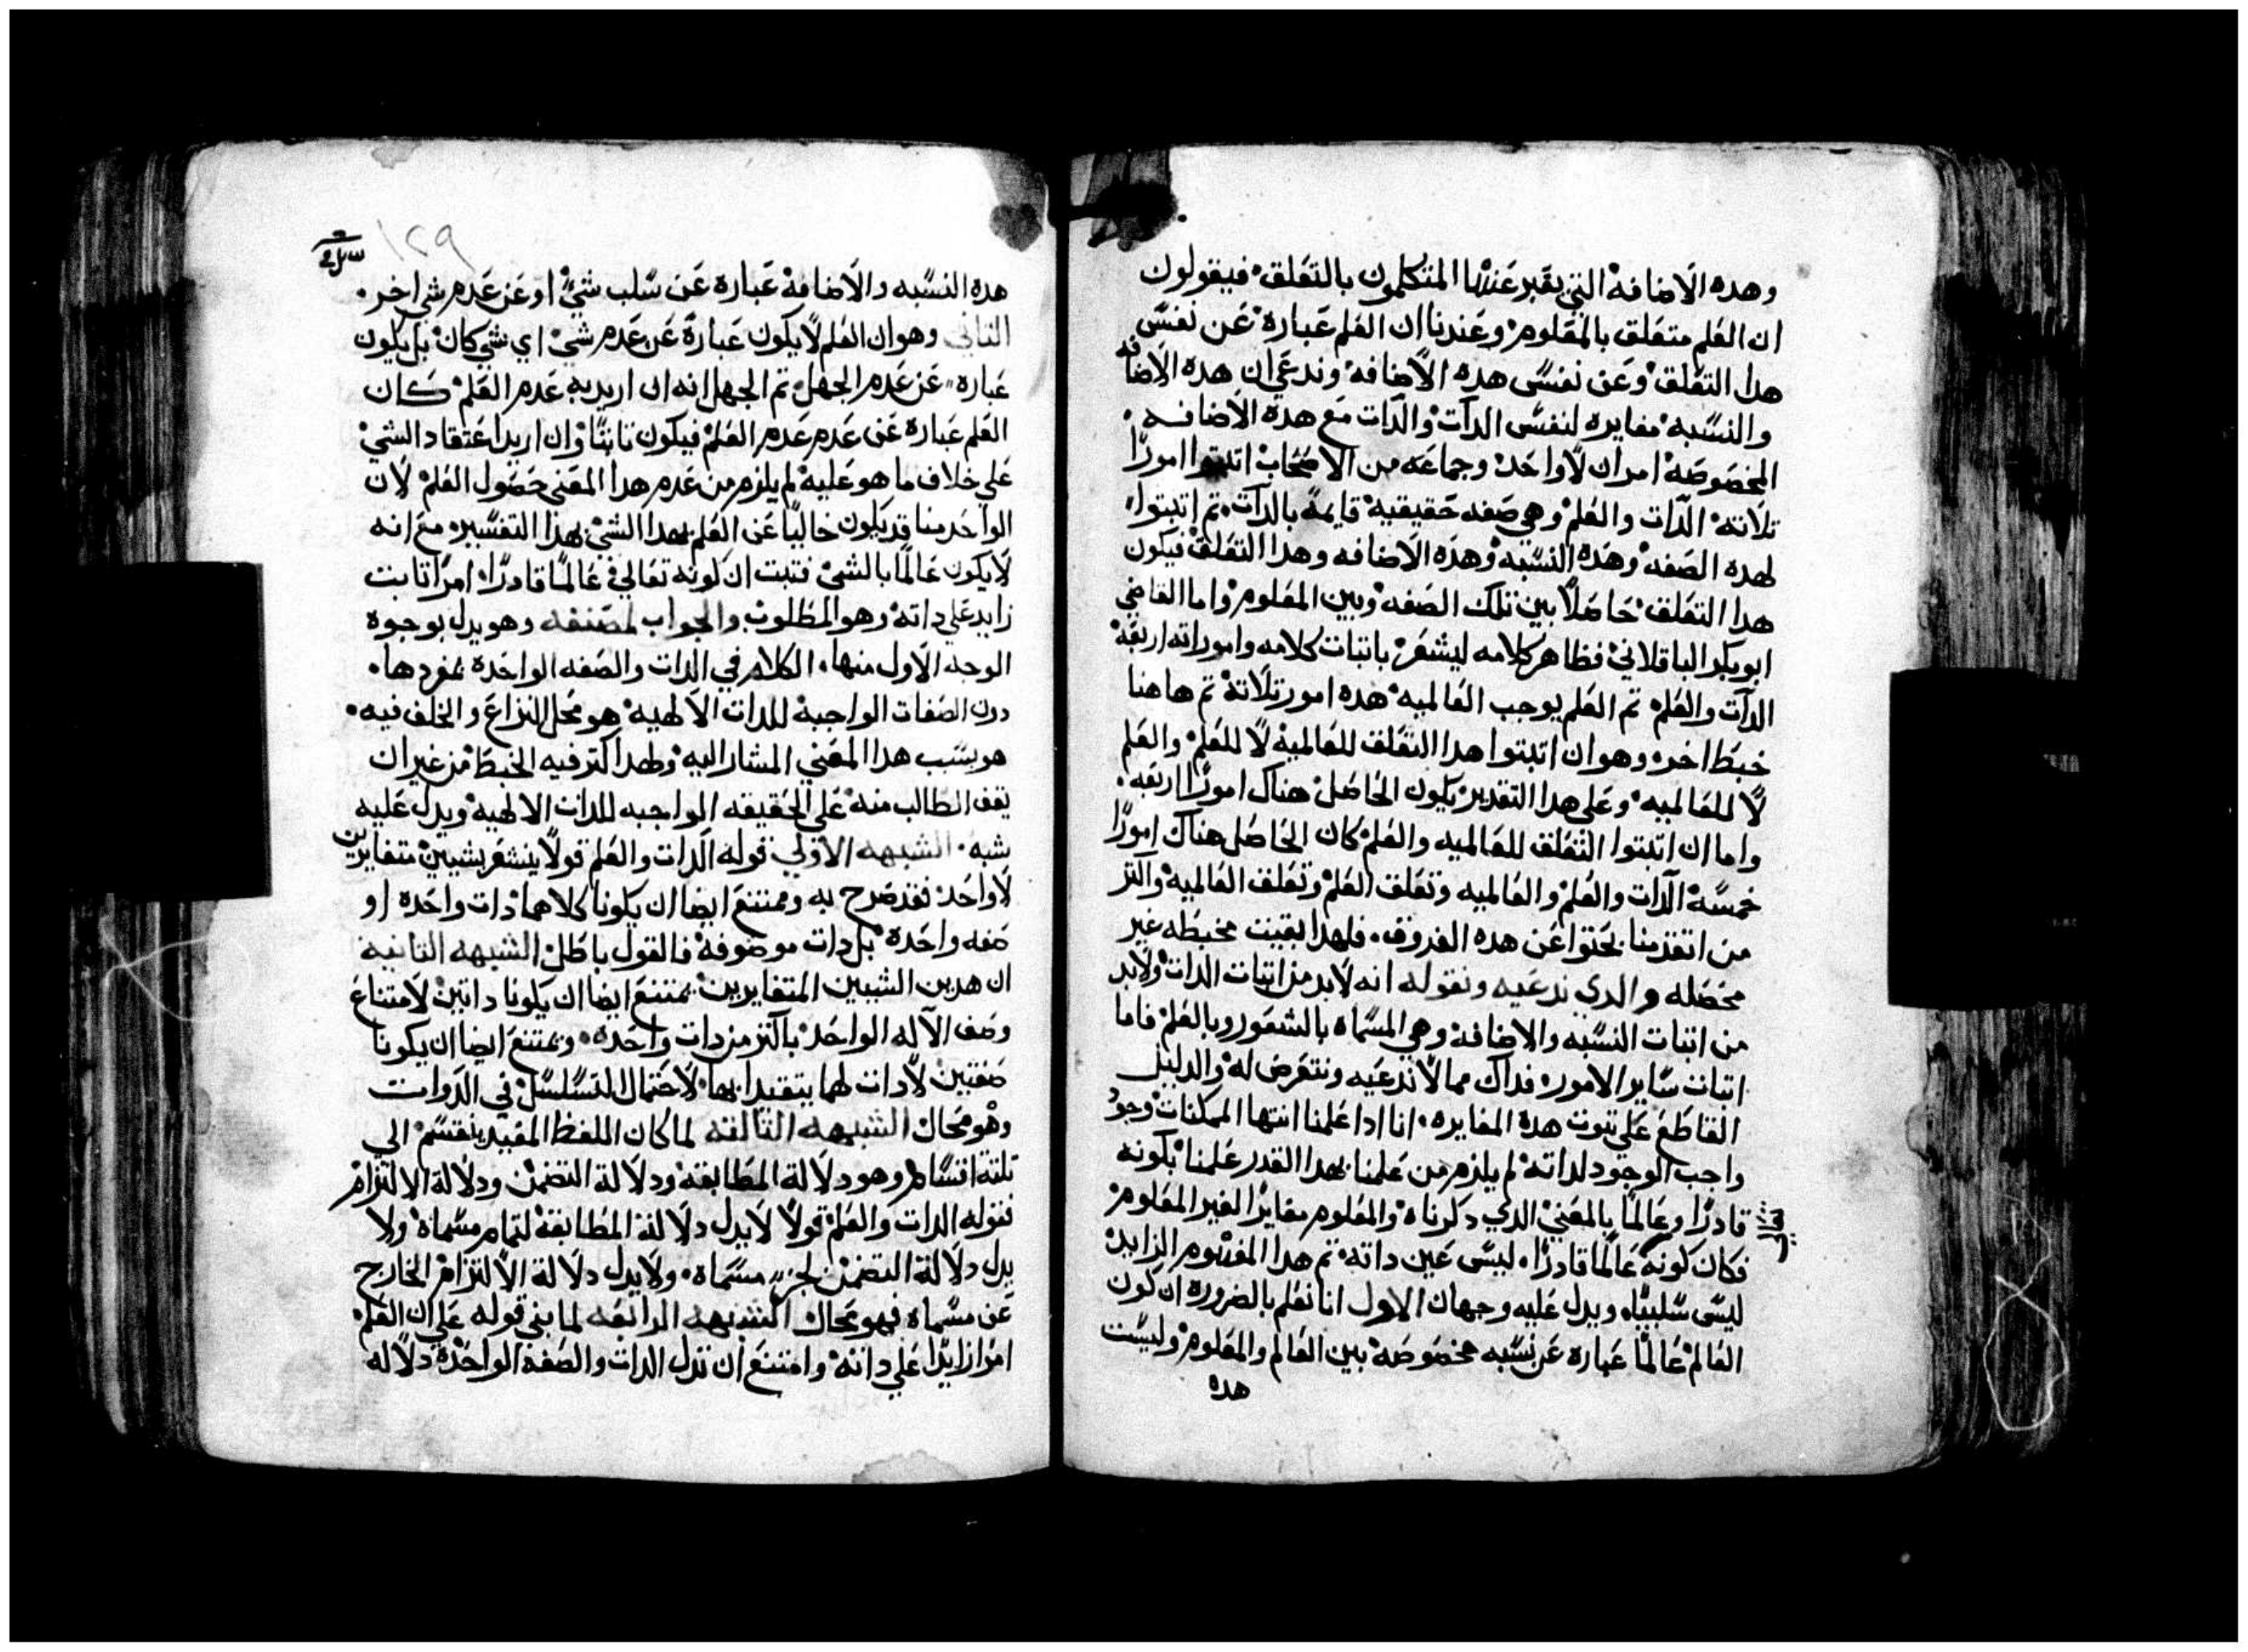 وهده الاضافة التي يعبر عنها المتكلمون بالتعلق فيقولون
ان العلم متعلق بالمعلوم وعندنا ان العلم عبارة عن نفس
هدا التعلق وعن نفس هده الاضافه وندعي ان هده الاضافه
والنسبه مغايره لنفس الدات والدات مع هده الاضافه
المخصوصه امران لا واحد وجماعه من الاصحاب اتبتوا امورًا
تلاته الدات والعلم وهي صفه حقيقيه قايمة بالدات تم اتبتوا
لهده الصفه وهده النسبه وهده الاضافه وهدا التعلق فيكون
هدا التعلق حاصلًا بين تلك الصفه وبين المعلوم واما القاضي
ابو بكر الباقلاني فظاهر كلامه ليشعر باتبات كلامه وامور اته اربعه
الدات والعلم تم العلم يوجب العالميه هده امور تلاتة تم هاهنا
خبط اخر وهو ان اتبتوا هدا التعلق للعالمية لا للعلم والعلم
لا للعالميه وعلى هدا التقدير يكون الحاصل هناك امورًا اربعه
واما ان اتبتوا التعلق للعالميه والعلم كان الحاصل هناك امورًا
خمسة الدات والعلم والعالميه وتعلق العلم وتعلق العالمية واكتر
من اتقدمنا بحتوا عن هده الفروق فلهدا بقيت مخبطه غير
محصله والدي ندعيه ونقوله انه لابد من اتبات الدات ولابد
من اتبات النسبه والاضافه وهي المسماه بالشعور وبالعلم فاما
اتبات ساير الامور فداك مما لا ندعيه ونتعرض له والدليل
القاطع على تبوت هده المغايره انا ادا علمنا انتها الممكنات وجود
واجب الوجود لداته لم يلزم من علمنا بهدا القدر علمنا بكونه
قادرًا وعالمًا بالمعني الدي دكرناه والمعلوم مغايرًا لغير المعلوم
فكان كونه عالمًا قادرًا ليس عين داته تم هدا المفهوم الزايد
ليس سلبيًا ويدل عليه وجهان الاول انا نعلم بالضروره ان كون
العالم عالمًا عباره عن نسبه مخصوصة بين العالم والمعلوم وليست
هده
١٢٩
هده النسبه والاضافة عبارة عن سلب شي او عن عدم شي اخر
التاني وهو ان العلم لا يكون عبارة عن عدم شي اي شي كان بل يكون
عباره عن عدم الجهل تم الجهل انه ان اريد به عدم العلم كان
العلم عبارة عن عدم عدم العلم فيكون تابتًا وان اريد اعتقاد الشي
علي خلاف ما هو عليه لم يلزم من عدم هدا المعني حصول العلم لان
الواحد منا قد يكون خاليًا عن العلم بهدا الشي بهذا التفسير مع انه
لا يكون عالمًا بالشي فتبت ان كونه تعالي عالمًا قادرًا امرًا تابت
زايد علي داته وهو المطلوب والجواب لمصنفه وهو يدل بوجوه
الوجه الاول منها الكلام في الدات والصفه الواحدة بمفردها
دون الصفات الواجبة للدات الالهيه هو محل النزاع والخلف فيه
هو بسبب هدا المعني المشار اليه ولهدا كتر فيه الخبط من غير ان
يقف الطالب منه علي الحقيقه الواجبه للدات الالهيه ويدل عليه
شبه الشبهه الاولي قوله الدات والعلم قولًا ينشعر بشيين متغايرين
لا واحد فقد صرح به وممتنع ايضا ان يكونا كلاهما دات واحده او
صفه واحدة بل دات موصوفة فالقول باطل الشبهه التانيه
ان هدين الشيين المتغايرين يمتنع ايضا ان يكونا داتين لامتناع
وصف الاله الواحد باكتر من دات واحده ويمتنع ايضا ان يكونا
صفتين لا دات لهما يتقيدا بها لاحتمال التسلسل في الدوات
وهو محال الشبهه التالته لما كان اللفظ المفيد ينقسم الي
تلتة اقسام وهو دلالة المطابقة ودلالة التضمن ودلالة الالتزام
فقوله الدات والعلم قولًا لا يدل دلالة المطابقة لتمام مسماة ولا
يدل دلالة التضمن لجزء مسماه ولا يدل دلالة الالتزام الخارج
عن مسماه فهو محال الشبهه الرابعه لما بني قوله علي ان العلم
امرًا زايدًا علي داته وامتنع ان تدل الدات والصفة الواحدة دلاله